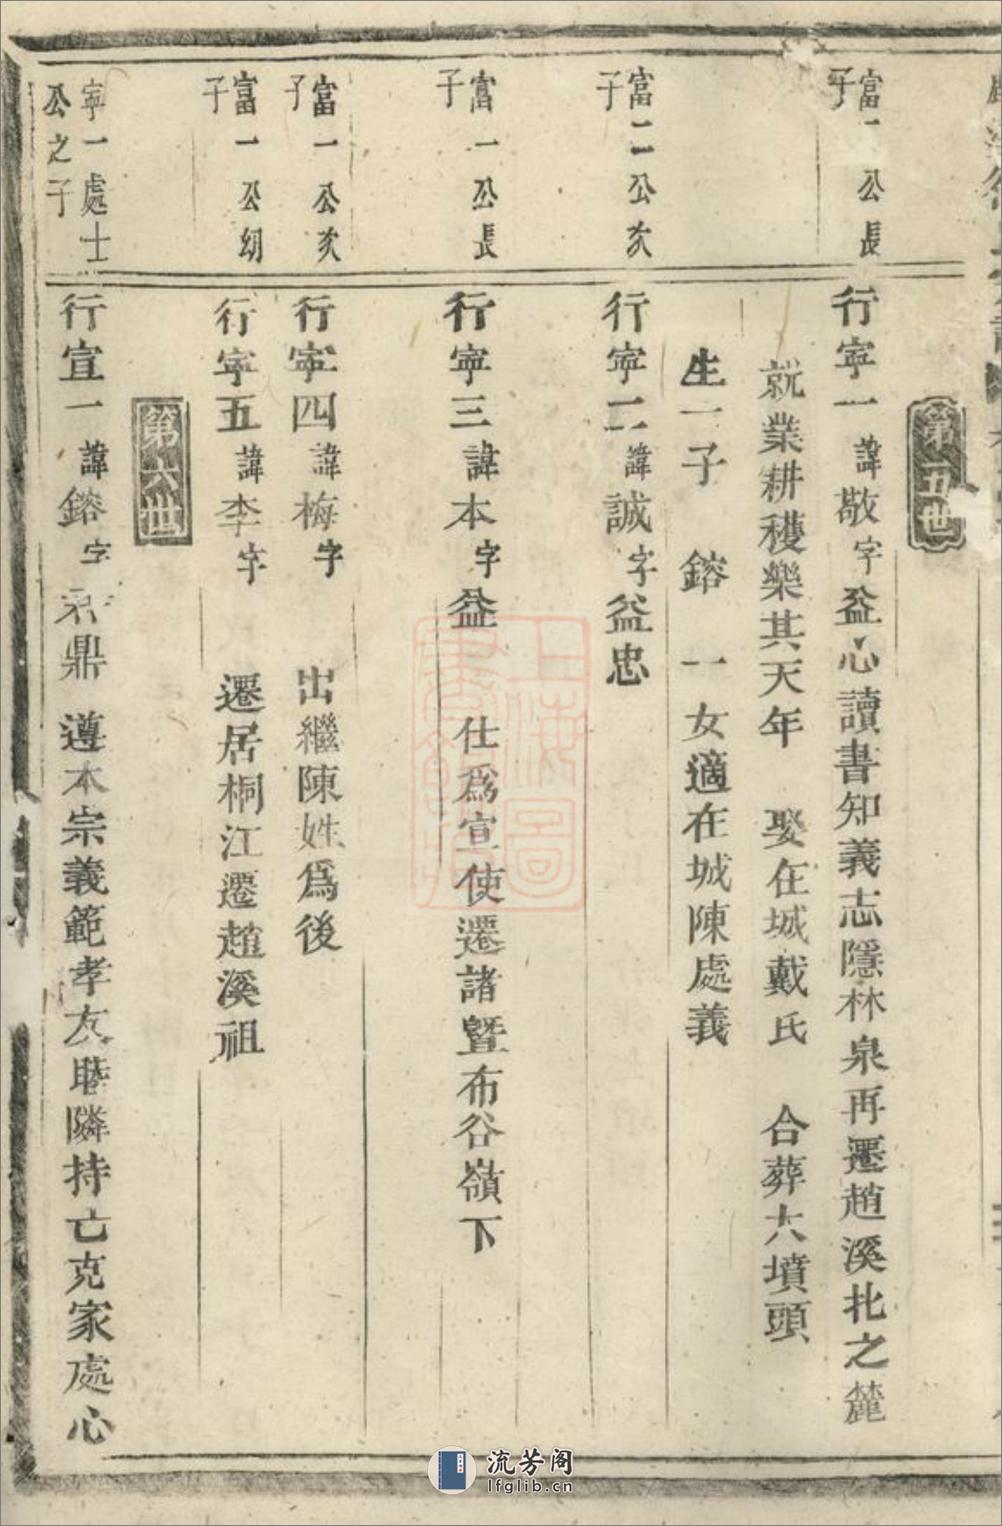 第五世
富一公長子
行寜一諱敬字益心讀書知義志隱林泉再遷趙溪北之麓
就業耕穫樂其天年 娶在城戴氏 合葬大墳頭
生一子 鎔 一女適在城陳處義
富二公次子
行寜二諱誠字益忠
富一公長子
行寜三諱本字益 仕爲宣使遷諸暨布谷嶺下
富一公次子
行寜四諱梅字 出繼陳姓爲後
富一公幼子
行寜五諱李字 遷居桐江遷趙溪祖
第六世
寜一處士公之子
行宣一諱鎔字 鼎 遵本宗義範孝友睦隣持亡克家處心
上海圖書館藏
流芳阁
lfglib.cn